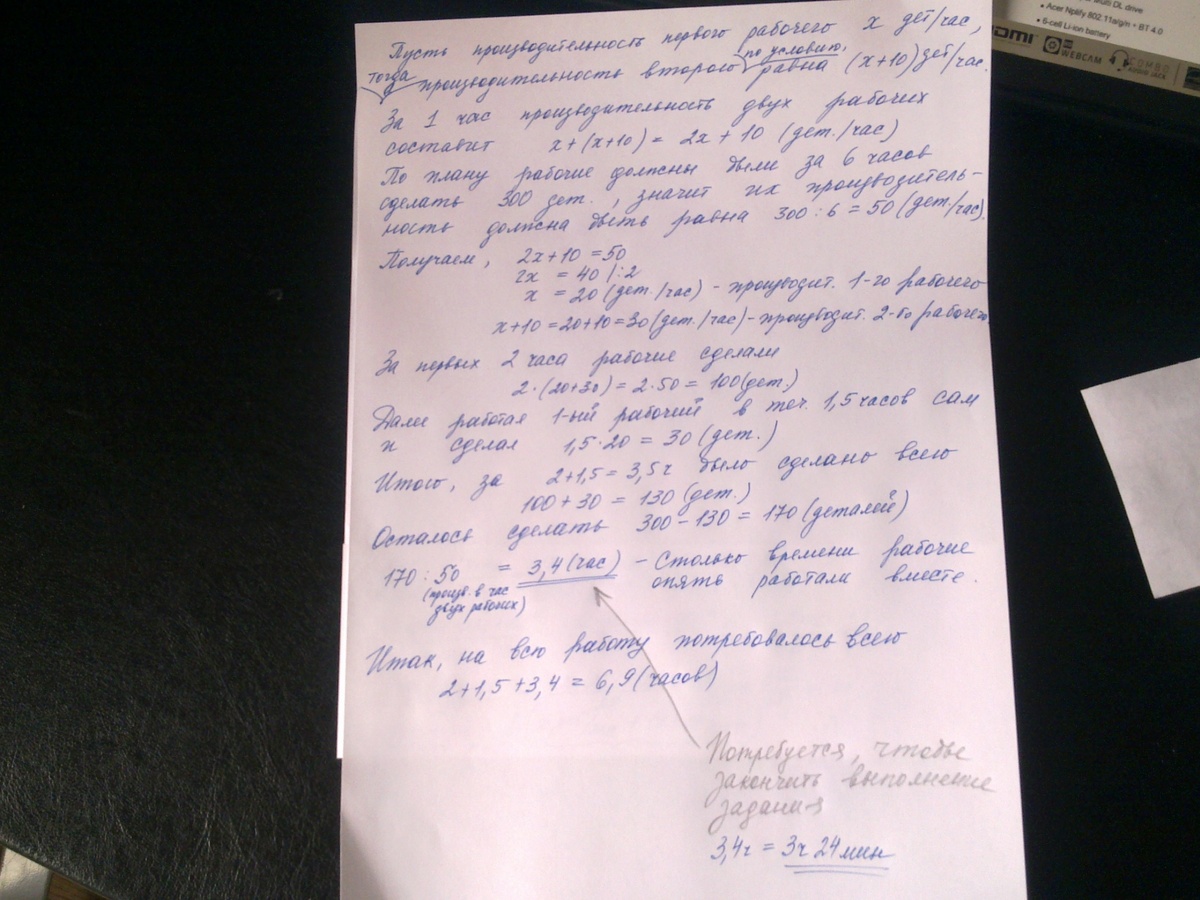 Multi DL drive
• Acer Nplify 802.11a/g/n + BT 4.0
• 6-cell Li-ion battery
HDMI
HD WEBCAM
COMBO AUDIO JACK
Пусть производительность первого рабочего x дет/час,
тогда производительность второго по условию, равна (x+10) дет/час.
За 1 час производительность двух рабочих
составит x+(x+10) = 2x + 10 (дет./час)
По плану рабочие должны были за 6 часов
сделать 300 дет., значит их производитель-
ность должна быть равна 300 : 6 = 50 (дет/час).
Получаем, 2x+10 = 50
2x = 40 /:2
x = 20 (дет./час) - производит. 1-го рабочего
x+10 = 20+10 = 30 (дет./час) - производит. 2-го рабочего.
За первых 2 часа рабочие сделали
2·(20+30) = 2·50 = 100 (дет.)
Далее работал 1-ый рабочий в теч. 1,5 часов сам
и сделал 1,5·20 = 30 (дет.)
Итого, за 2+1,5 = 3,5 ч было сделано всего
100 + 30 = 130 (дет.)
Осталось сделать 300 - 130 = 170 (деталей)
170 : 50 = 3,4 (час) - Столько времени рабочие
(произв. в час опять работали вместе.
двух рабочих)
Итак, на всю работу потребовалось всего
2+1,5+3,4 = 6,9 (часов)
Потребуется, чтобы
закончить выполнение
задания
3,4ч = 3ч 24мин